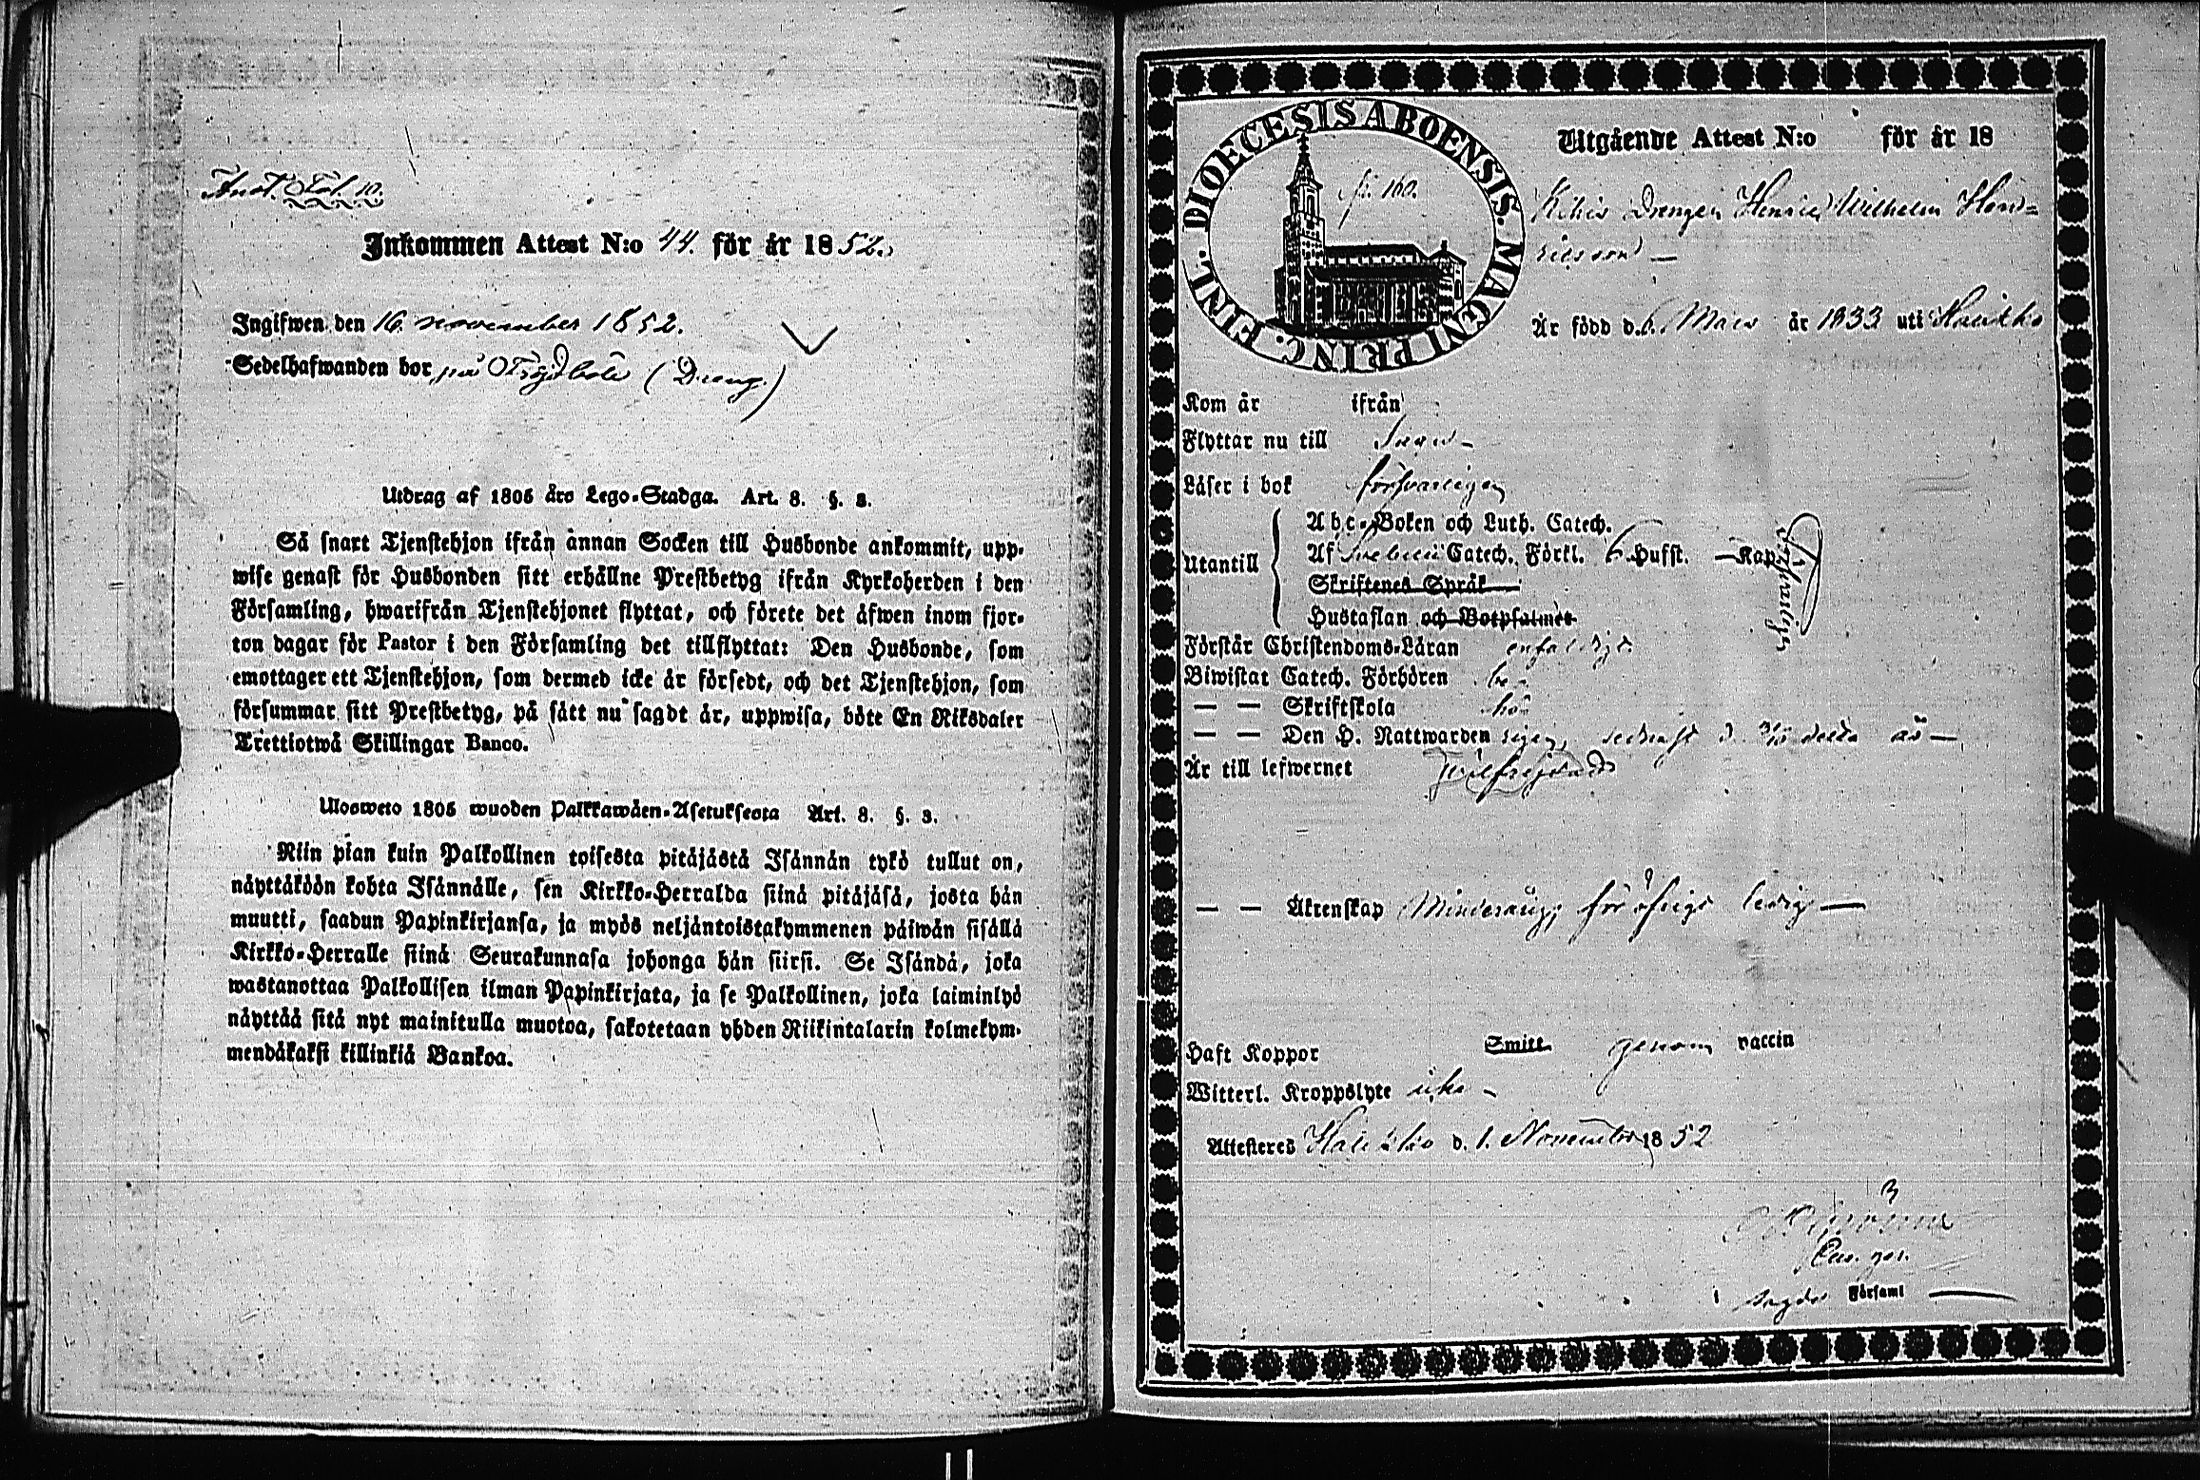 Anot. Fol. 10.
Inkommen Attest N:o 44. för år 1852.
Ingifwen den 16 november 1852.
Sedelhafwanden bor på Fröjdböle (Dreng.)
Utdrag af 1805 års Lego-Stadga. Art. 8. §. 3.
Så snart Tjenstehjon ifrån annan Socken till Husbonde ankommit, upp-
wise genast för Husbonden sitt erhållne Prestbetyg ifrån Kyrkoherden i den
Församling, hwarifrån Tjenstehjonet flyttat, och förete det äfwen inom fjor-
ton dagar för Pastor i den Församling det tillflyttat: Den Husbonde, som
emottager ett Tjenstehjon, som dermed icke är försedt, och det Tjenstehjon, som
försummar sitt Prestbetyg, på sätt nu sagdt är, uppwisa, böte En Riksdaler
Trettiotwå Skillingar Banco.
Ulosweto 1805 wuoden Palkkawäen-Asetuksesta Art. 8. §. 3.
Niin pian kuin Palkollinen toisesta pitäjästä Isännän tykö tullut on,
näyttäköön kohta Isännälle, sen Kirkko-Herralda siinä pitäjäsä, josta hän
muutti, saadun Papinkirjansa, ja myös neljäntoistakymmenen päiwän sisällä
Kirkko-Herralle siinä Seurakunnasa johonga hän siirsi. Se Isändä, joka
wastanottaa Palkollisen ilman Papinkirjata, ja se Palkollinen, joka laiminlyö
näyttää sitä nyt mainitulla muotoa, sakotetaan yhden Riikintalarin kolmekym-
mendäkaksi killinkiä Bankoa.
DIOECESIS ABOENSIS. MAGNI PRINC. FINL.
160.
Utgående Attest N:o för år 18
Drengen Henric Wilhelm Hen-
ricsson
Är född d. 6 Mars år 1833 uti Hauskko
Kom år ifrån
Flyttar nu till
Läser i bok försvarligen
Utantill
Abc-Boken och Luth. Catech.
Af Svebelii Catech. Förkl. 6 Hufst. — Kap.
Skriftenes Språk
Hustaflan och Botpsalmer
Förstår Christendoms-Läran enfaldigt
Biwistat Catech. Förhören
— — Skriftskola
— — Den H. Nattwarden detta år —
Är till lefwernet wälfrejdad
— — Äktenskap Minderårig; för öfrigt ledig —
Haft Koppor Smitt. genom vaccin
Witterl. Kroppslyte icke
Attesteras d. 1. November 1852
i sagde Församl